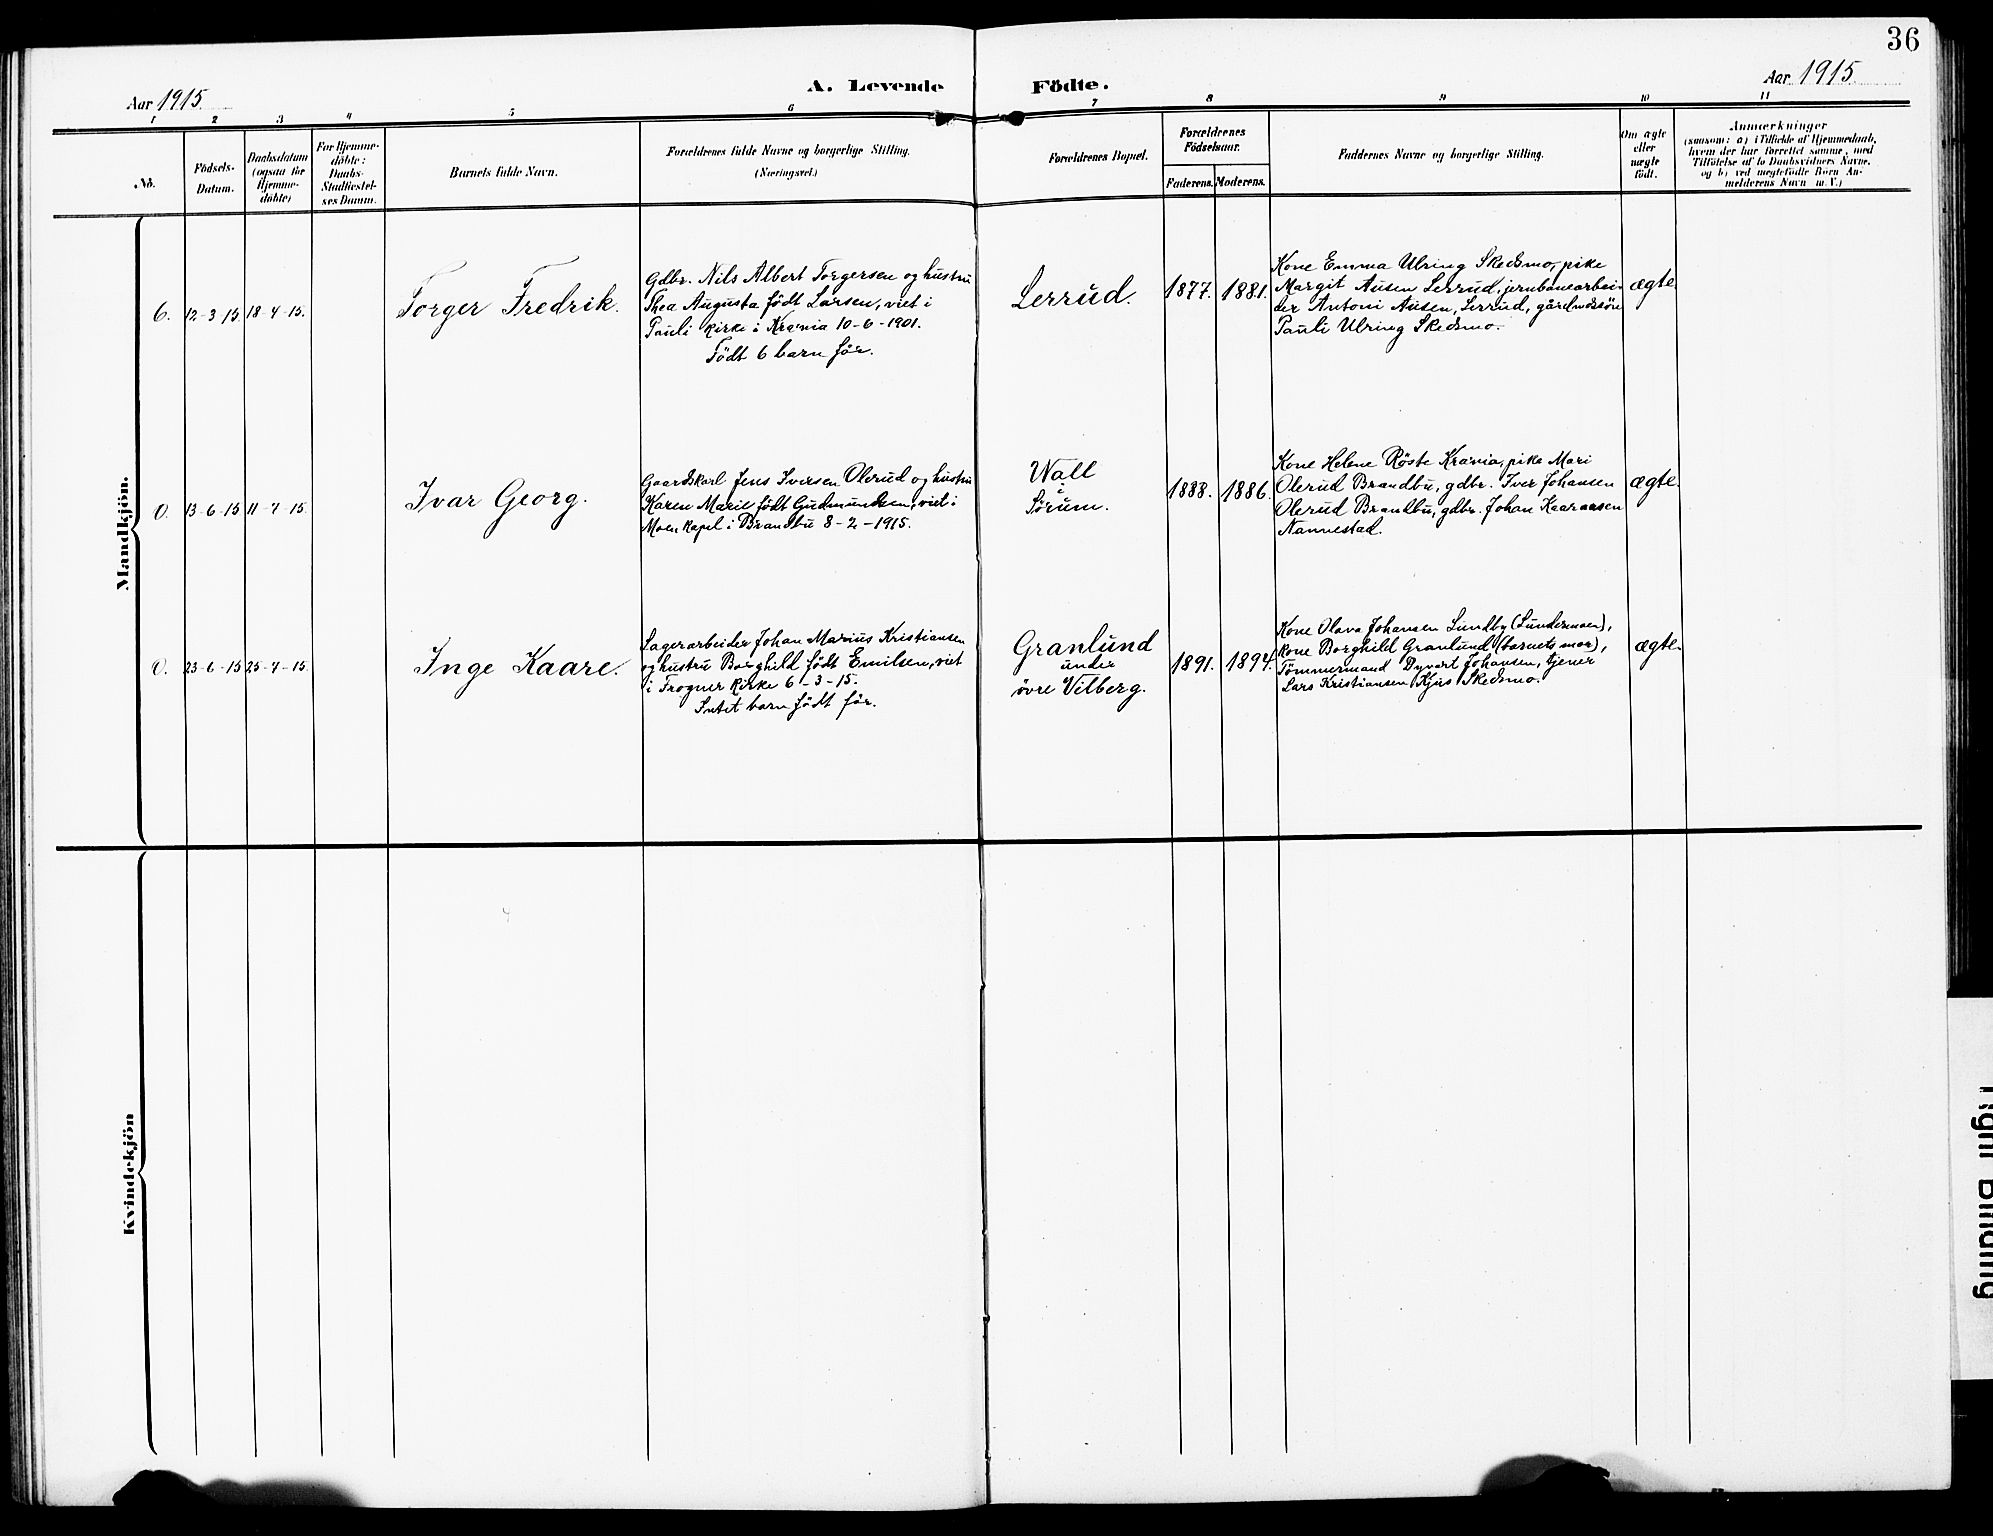 36
Aar 1915.
A. Levende
Födte.
Aar 1915
1 2 3 4 5 6 7 8 9 10 11
No.
Födsels-
Datum.
Daabsdatum
(ogsaa for
Hjemme-
döbte)
For Hjemme-
döbte:
Daabs-
Stadfæstel-
ses Datum.
Barnets fulde Navn.
Forældrenes fulde Navne og borgerlige Stilling.
(Næringsvei.)
Forældrenes Bopæl.
Forældrenes
Födselsaar.
Faderens.
Moderens.
Faddernes Navne og borgerlige Stilling.
Om ægte
eller
uægte
födt.
Anmærkninger
(saasom: a) i Tilfælde af Hjemmedaab,
hvem der har forrettet samme, med
Tilföielse af to Daabsvidners Navne,
og b) ved uægtefödte Börn An-
melderens Navn m. V.)
Mandkjön.
6.
12-3-15.
18-4-15.
Torger Fredrik.
Gdbr. Nils Albert Torgersen og hustru
Thea Augusta født Larsen, viet i
Pauli kirke i Kr.ania 10-6-1901.
Födt 6 barn før.
Lerrud.
1877.
1881.
Kone Emma Ulring Skedsmo, pike
Margit Ausen Lerrud, jernbanearbei-
der Antoni Ausen, Lerrud, gårdmdssön
Pauli Ulring Skedsmo.
ægte
0.
13-6-15
11-7-15.
Ivar Georg.
Gaardskarl Jens Iversen Olerud og hustru
Karen Marie født Gudmundsen, viet i
Moen kapel i Brandbu 8-2-1915.
Wall
i
Sørum.
1888.
1886.
Kone Helene Röste Kr.ania, pike Mari
Olerud Brandbu, gdbr. Iver Johansen
Olerud Brandbu, gdbr. Johan Kaarassen
Nannestad.
ægte.
0.
23-6-15
25-7-15.
Inge Kaare.
Lagerarbeider Johan Marius Kristiansen
og hustru Borghild født Emilsen, viet
i Frogner Kirke 6-3-15.
Intet barn födt før.
Granlund
under
övre Vilberg.
1891.
1894.
Kone Olava Johansen Lundby (Lundermoen),
kone Borghild Granlund (barnets mor),
Tömmermand Dyvart Johansen, tjener
Lars Kristiansen Kjus Skedsmo.
ægte.
Kvindekjön
Tight Binding